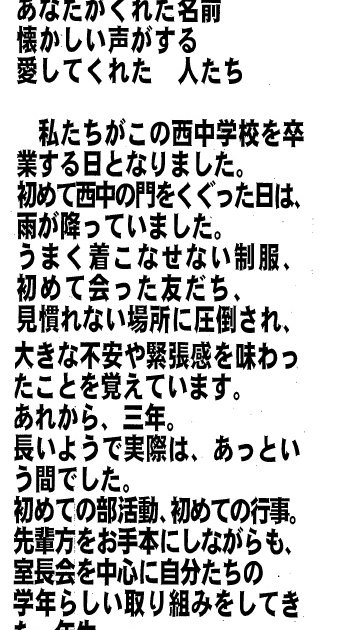 あなたがくれた名前
懐かしい声がする
愛してくれた　人たち

　私たちがこの西中学校を卒
業する日となりました。
初めて西中の門をくぐった日は、
雨が降っていました。
うまく着こなせない制服、
初めて会った友だち、
見慣れない場所に圧倒され、
大きな不安や緊張感を味わっ
たことを覚えています。
あれから、三年。
長いようで実際は、あっとい
う間でした。
初めての部活動、初めての行事。
先輩方をお手本にしながらも、
室長会を中心に自分たちの
学年らしい取り組みをしてき